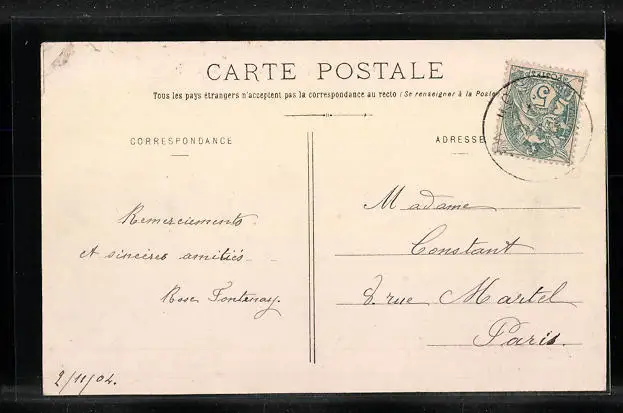 CARTE POSTALE
Tous les pays étrangers n'acceptent pas la correspondance au recto (Se renseigner à la Poste)
CORRESPONDANCE
ADRESSE
Remerciements
et sincères amitiés
Rose Fontenay.
2/11/04.
Madame
Constant
8. rue Martel
Paris.
5